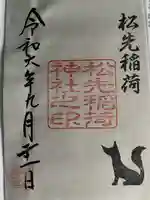 松先稲荷
松先稲荷
神社之印
令和六年九月 日